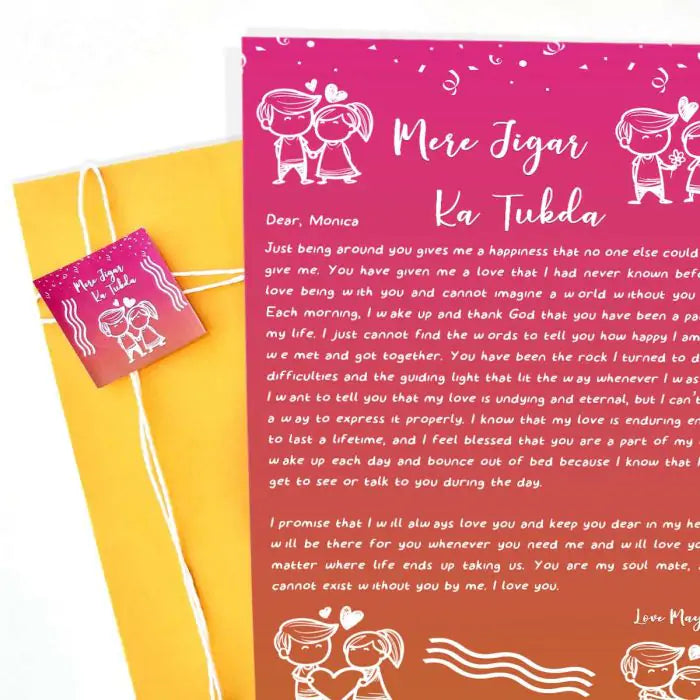 Mere Jigar
Ka Tukda
Mere Jigar
Ka Tukda
Dear, Monica
Just being around you gives me a happiness that no one else could
give me. You have given me a love that I had never known
love being with you and cannot imagine a world without you
Each morning, I wake up and thank God that you have been a
my life. I just cannot find the words to tell you how happy I am
we met and got together. You have been the rock I turned to
difficulties and the guiding light that lit the way whenever I was
I want to tell you that my love is undying and eternal, but I can't
a way to express it properly. I know that my love is enduring
to last a lifetime, and I feel blessed that you are a part of my
wake up each day and bounce out of bed because I know that I
get to see or talk to you during the day.
I promise that I will always love you and keep you dear in my
will be there for you whenever you need me and will love
matter where life ends up taking us. You are my soul mate,
cannot exist without you by me. I love you.
Love